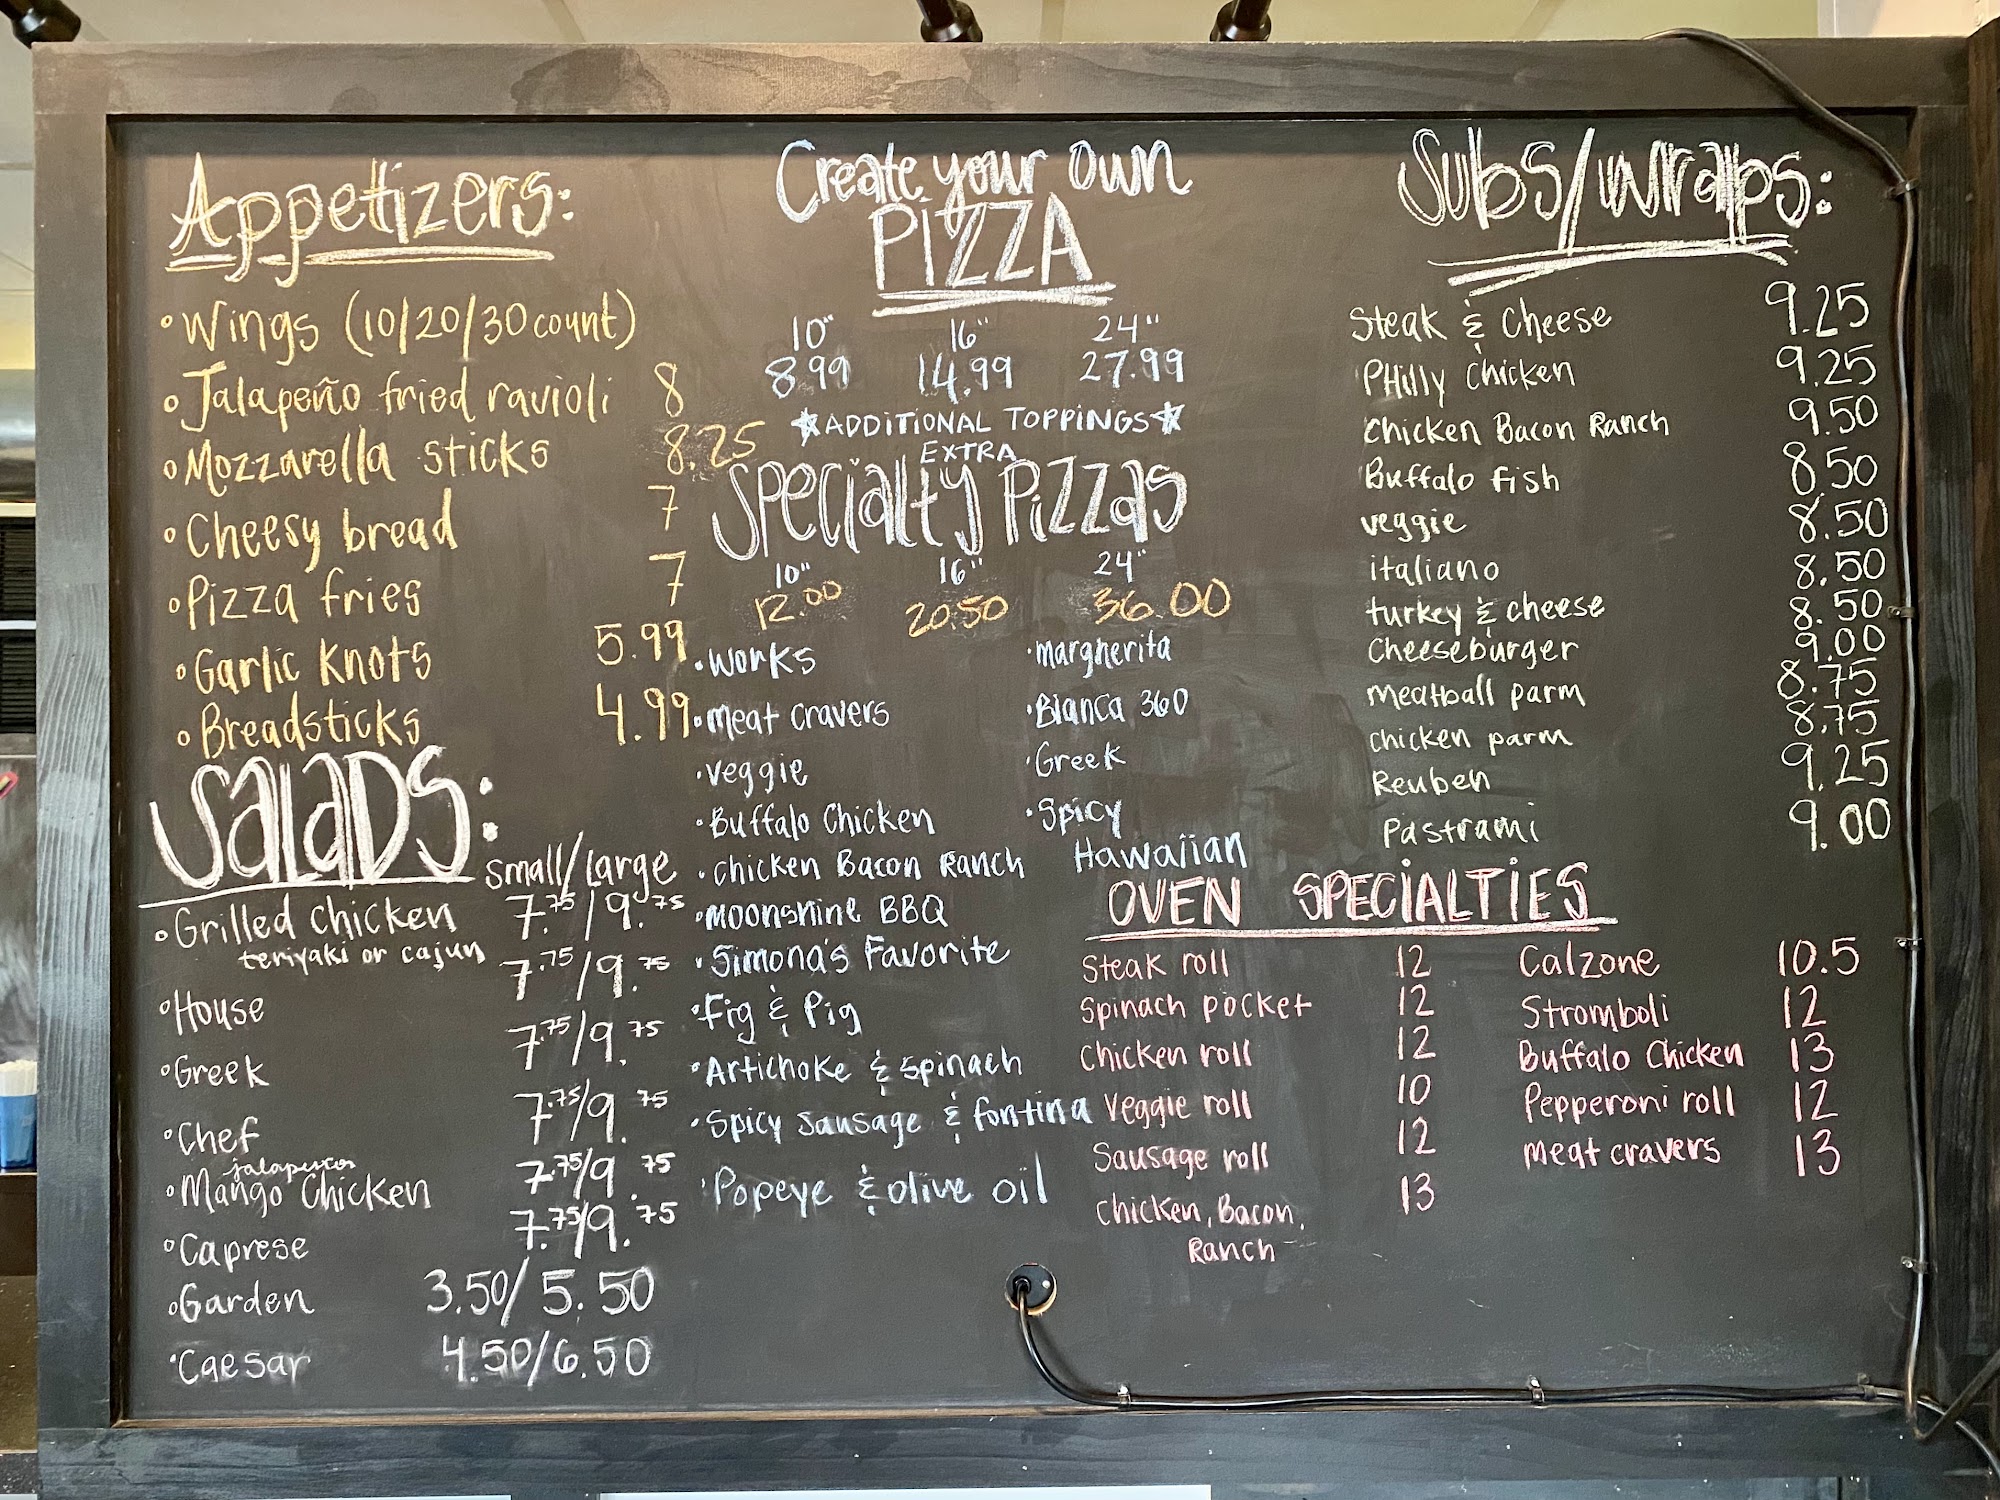 Appetizers:
• Wings (10/20/30 count)
• Jalapeño fried ravioli 8
• Mozzarella sticks 8.25
• Cheesy bread 7
• Pizza fries 7
• Garlic Knots 5.99
• Breadsticks 4.99
SALADS:
Small/Large
• Grilled chicken 7.75/9.75
teriyaki or cajun
• House 7.75/9.75
• Greek 7.75/9.75
• Chef 7.75/9.75
jalapeno
• Mango Chicken 7.75/9.75
• Caprese 7.75/9.75
• Garden 3.50/5.50
• Caesar 4.50/6.50
Create your own
PIZZA
10" 16" 24"
8.99 14.99 27.99
★ADDITIONAL TOPPINGS★
EXTRA
Specialty Pizzas
10" 16" 24"
12.00 20.50 36.00
• Works
• Meat Cravers
• Veggie
• Buffalo Chicken
• Chicken Bacon Ranch
• Moonshine BBQ
• Simona's Favorite
• Fig & Pig
• Artichoke & Spinach
• Spicy Sausage & fontina
• Popeye & olive oil
• Margherita
• Blanca 360
• Greek
• Spicy
Hawaiian
Subs/Wraps:
Steak & Cheese 9.25
PHilly Chicken 9.25
Chicken Bacon Ranch 9.50
Buffalo Fish 8.50
veggie 8.50
italiano 8.50
turkey & cheese 8.50
Cheeseburger 9.00
Meatball parm 8.75
chicken parm 8.75
Reuben 9.25
Pastrami 9.00
OVEN SPECIALTIES
Steak roll 12
Spinach pocket 12
Chicken roll 12
Veggie roll 10
Sausage roll 12
Chicken, Bacon, 13
Ranch
Calzone 10.5
Stromboli 12
Buffalo Chicken 13
Pepperoni roll 12
Meat cravers 13